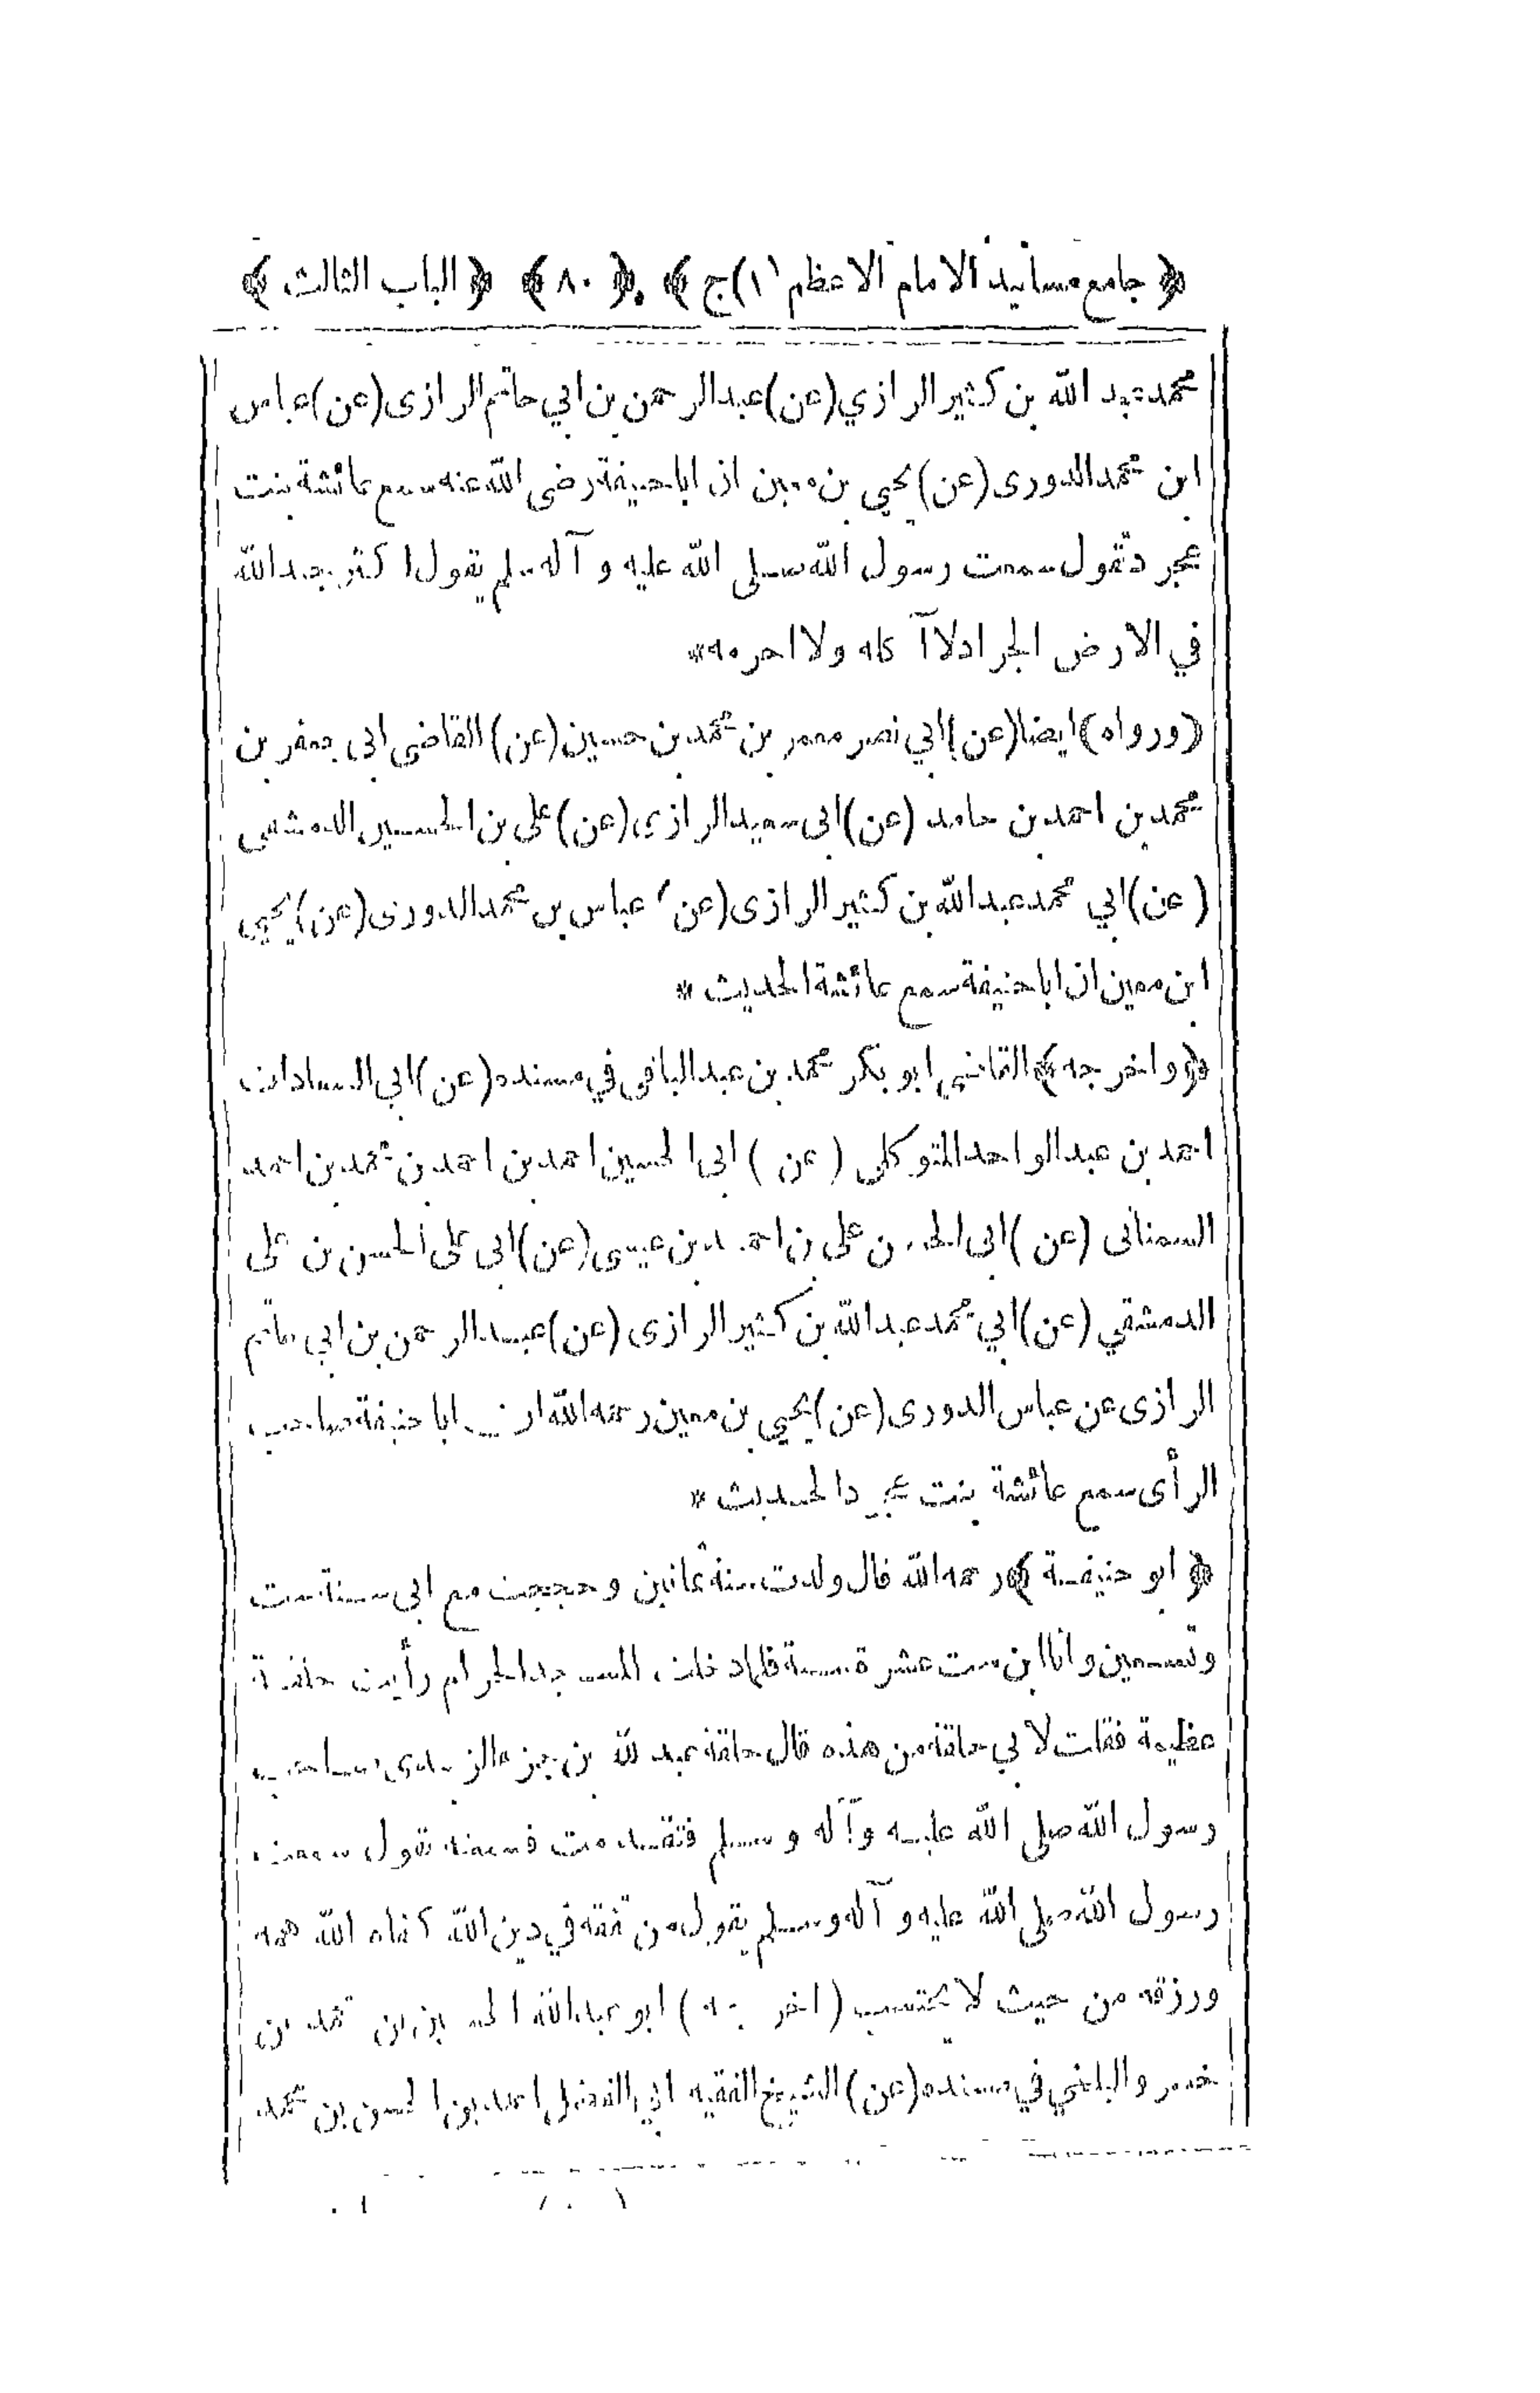 ﴿جامع مسانيد الامام الاعظم (١) ج﴾ ﴿٨٠﴾ ﴿الباب الثالث﴾
محمد عبد الله بن كثير الرازي (عن) عبد الرحمن بن ابي حاتم الرازى (عن) عباس
ابن محمد الدورى (عن) يحيي بن معين ان ابا حنيفة رضى الله عنه سمع عائشة بنت
عجرد تقول سمعت رسول الله صلى الله عليه و آله سلم يقول ا كثر جند الله
في الارض الجراد لا آ كله ولا احرمه *
(ورواه) ايضا (عن) ابي نصر معمر بن محمد بن حسين (عن) القاضى ابى جعفر بن
محمد بن احمد بن حامد (عن) ابى سعيد الرازى (عن) على بن الحسين الدمشقى
(عن) ابي محمد عبد الله بن كثير الرازى (عن) عباس بن محمد الدورى (عن) يحيي
ابن معين ان ابا حنيفة سمع عائشة الحديث *
﴿واخرجه﴾ القاضي ابو بكر محمد بن عبد الباقى في مسنده (عن) ابى السعادات
احمد بن عبد الواحد المتوكلى (عن) ابى الحسين احمد بن احمد بن محمد بن احمد
السمنانى (عن) ابى الحسن على بن احمد بن عيسى (عن) ابى على الحسن بن على
الدمشقي (عن) ابي محمد عبد الله بن كثير الرازى (عن) عبد الرحمن بن ابي حاتم
الرازى عن عباس الدورى (عن) يحيي بن معين رحمه الله ان ابا حنيفة صاحب
الرأى سمع عائشة بنت عجرد الحديث *
﴿ابو حنيفة﴾ رحمه الله قال ولدت سنة ثمانين وحججت مع ابى سنة ست
وتسعين وانا ابن ست عشرة سنة فلما دخلت المسجد الحرام رأيت حلقة
عظيمة فقلت لابي حلقة من هذه قال حلقة عبد الله بن جزء الزبيدى صاحب
رسول الله صلى الله عليه وآله وسلم فتقدمت فسمعته تقول سمعت
رسول الله صلى الله عليه و آله وسلم يقول من تفقه في دين الله كفاه الله همه
ورزقه من حيث لا يحتسب (اخرجه) ابو عبد الله الحسين بن محمد بن
خسرو البلخي في مسنده (عن) الشيخ الفقيه ابي الفضل احمد بن الحسن بن محمد